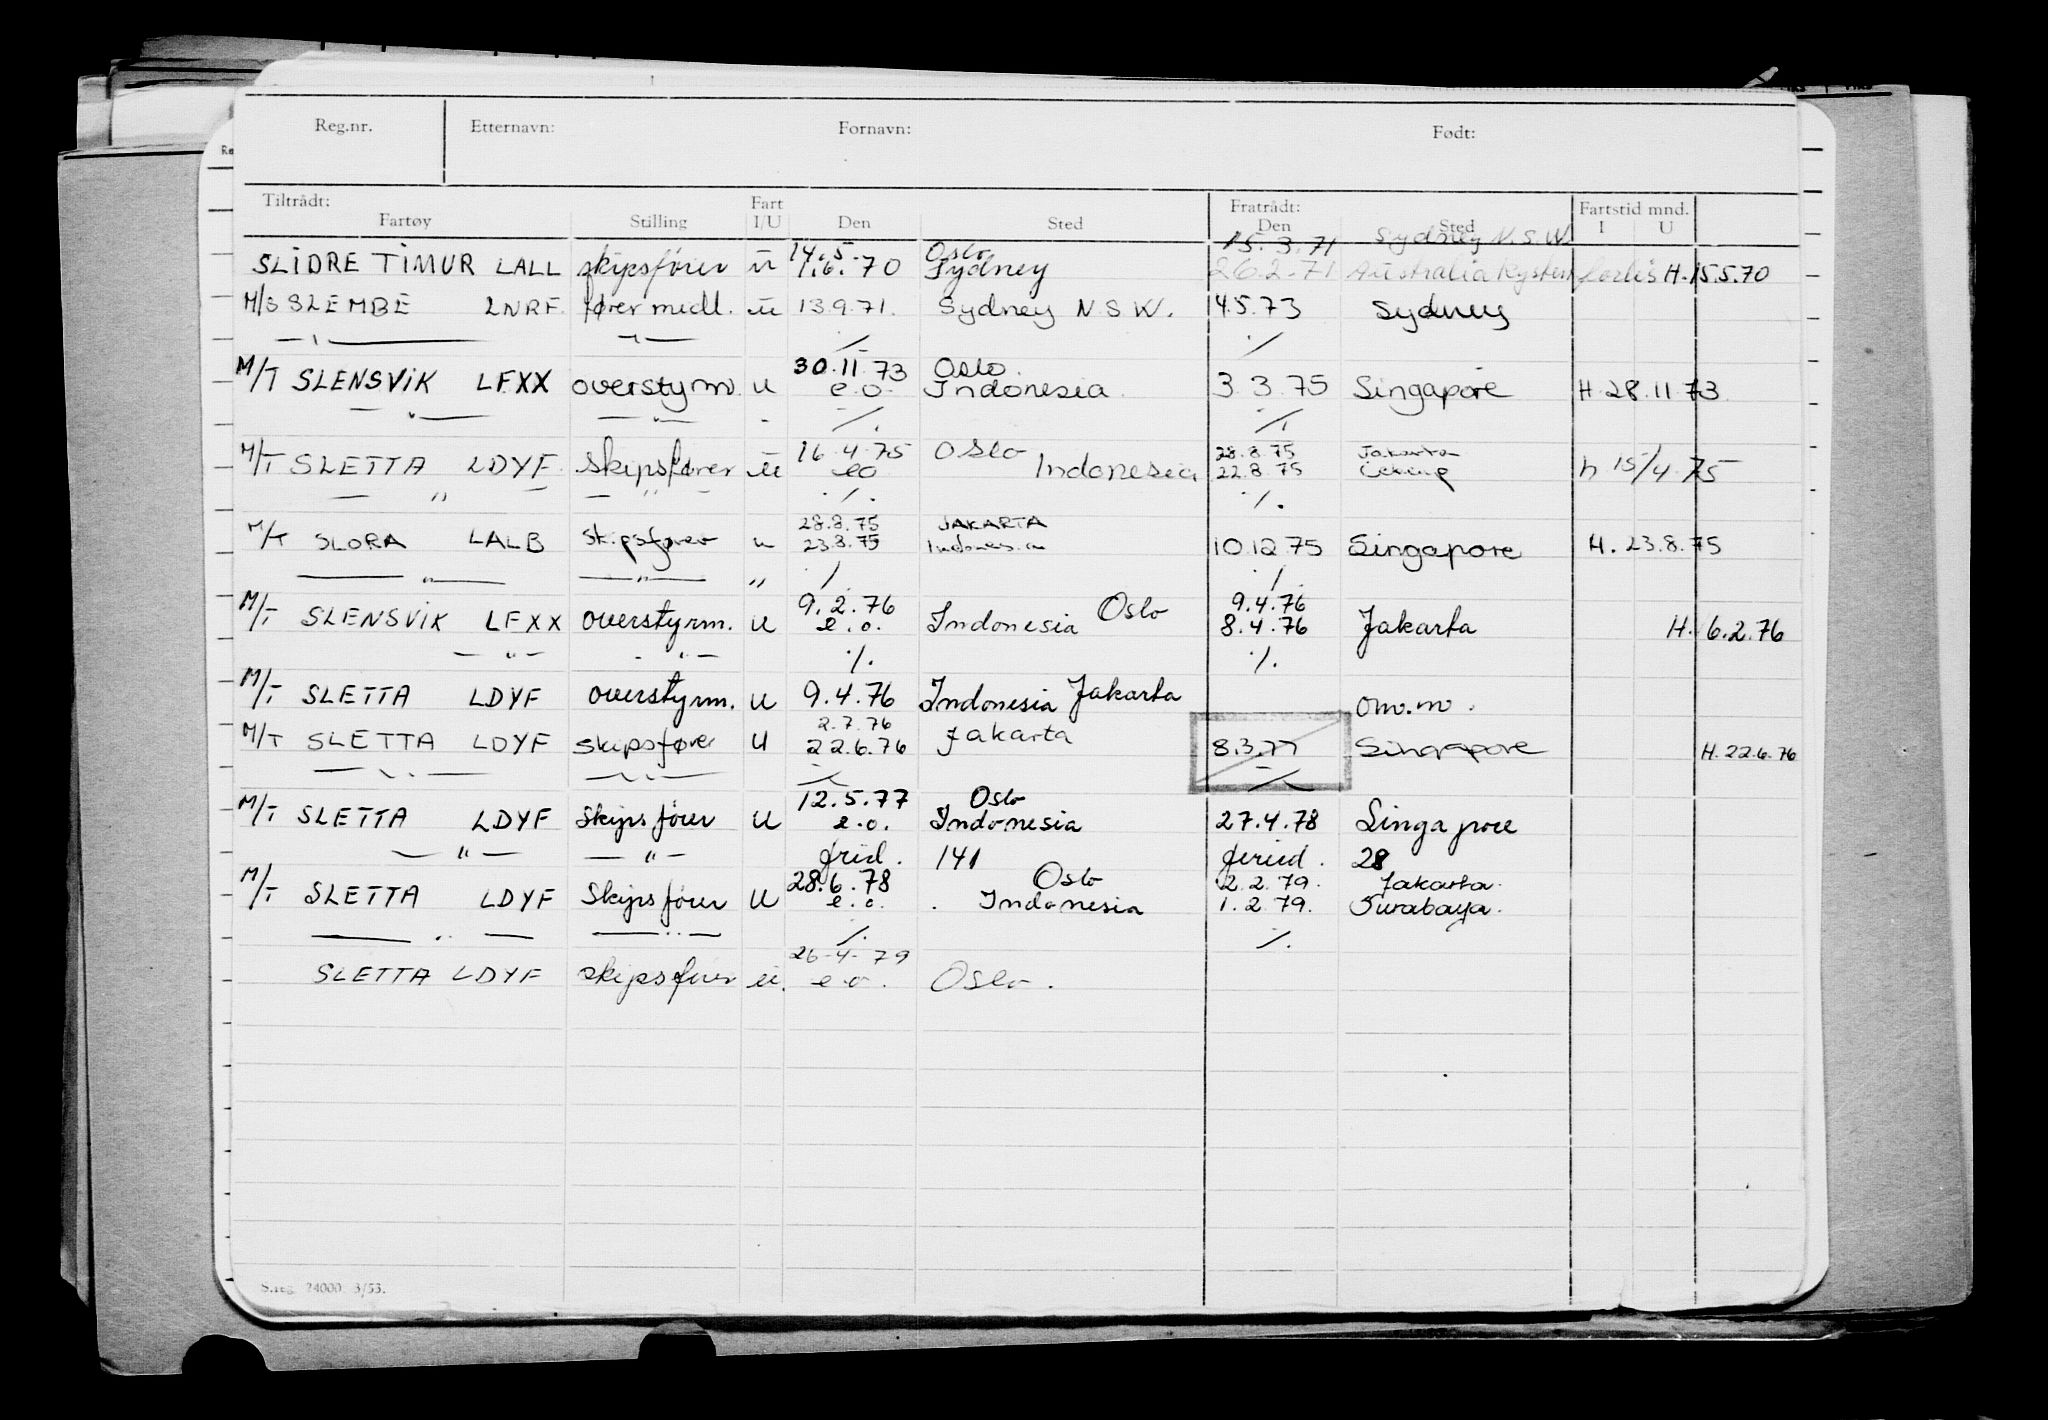 Reg.nr. Etternavn: Fornavn: Født:
Tiltrådt: Fart Fratrådt: Fartstid mnd.
Fartøy Stilling I/U Den Sted Den Sted I U
14.5. Oslo 15.3.71 Sydney N.S.W.
SLIDRE TIMUR LALL skipsfører u 1.6.70 Sydney 26.2.71 Australia Kysten H. 15.5.70
M/S SLEMBE LNRF fører medl. u 13.9.71. Sydney N.S.W. 4.5.73 Sydney
— " — — " — ./. ./.
30.11.73 Oslo.
M/T SLENSVIK LFXX overstyrm. u e.o. Indonesia. 3.3.75 Singapore H. 28.11.73
— " — — " — - ./. ./.
16.4.75 Oslo 28.8.75 Jakarta
M/T SLETTA LDYF. skipsfører u eo Indonesia 22.8.75 h 15/4.75
— " — — " — ./. ./.
28.8.75 JAKARTA
M/T SLORA LALB skipsfører u 23.8.75 Indonesia 10.12.75 Singapore H. 23.8.75
— " — — " — " ./. ./.
9.2.76 Oslo 9.4.76
M/T SLENSVIK LFXX overstyrm. u e.o. Indonesia 8.4.76 Jakarta H. 6.2.76
— " — - " — ./. ./.
M/T SLETTA LDYF overstyrm. u 9.4.76 Indonesia Jakarta om.m.
2.7.76
M/T SLETTA LDYF skipsfører u 22.6.76 Jakarta 8.3.77 Singapore H. 22.6.76
— " — — " — ./. ./.
12.5.77 Oslo
M/T SLETTA LDYF Skipsfører u e.o. Indonesia 27.4.78 Singapore
— " — — " — frid. 141 feried. 28
28.6.78 Oslo 2.2.79. Jakarta.
M/T SLETTA LDYF Skipsfører u e.o. Indonesia 1.2.79. Surabaya.
— " — — " — ./. ./.
26.4.79
SLETTA LDYF skipsfører u. e.o. Oslo.
S.reg. 24000 3/53.